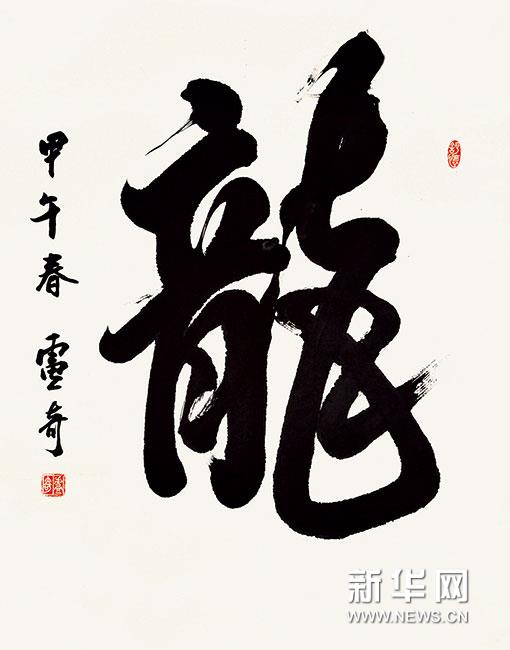 龍
甲午春 盧奇
新华网
WWW.NEWS.CN